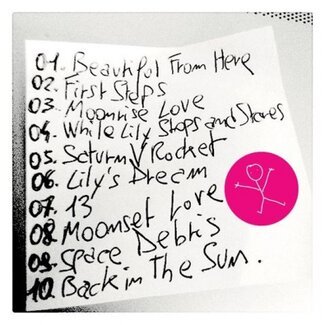 01. Beautiful From Here
02. First Steps
03. Moonrise Love
04. While Lily Stops and Stares
05. Saturn V Rocket
06. Lily's Dream
07. 13
08. Moonset Love
09. Space Debris
10. Back in The Sun.